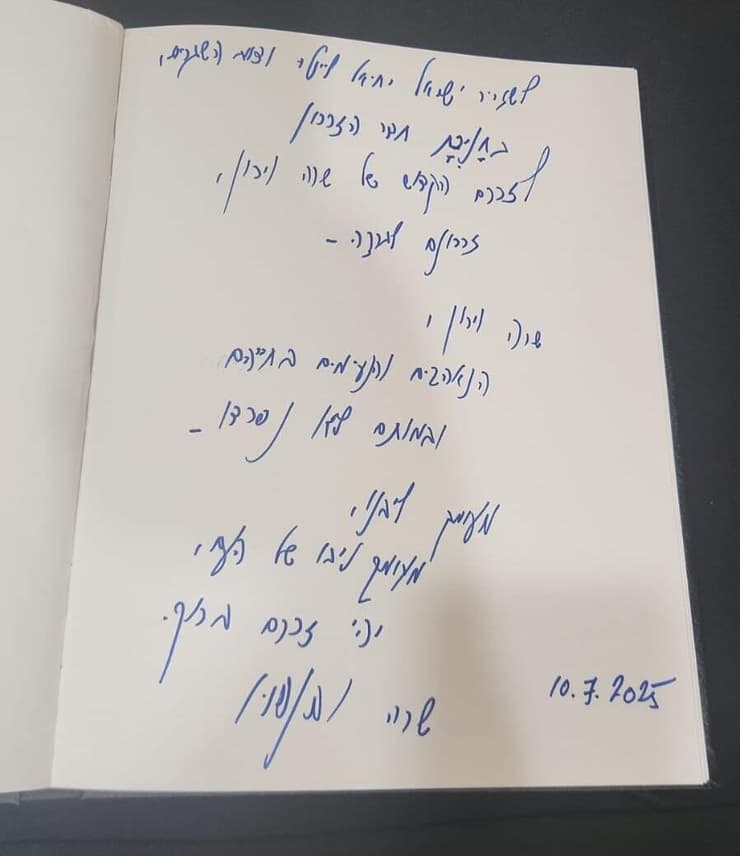 לשגריר ישראל יחיאל לייטר וצוות השגרירות,
בחניכת חדר הזכרון
לזכרם הקדוש של שרה וירון,
זכרונם לברכה –
שרה וירון,
הנאהבים והנעימים בחייהם
ובמותם לא נפרדו –
מעומק ליבנו,
מעומק ליבו של העם,
יהי זכרם ברוך.
שרה
10.7.2025